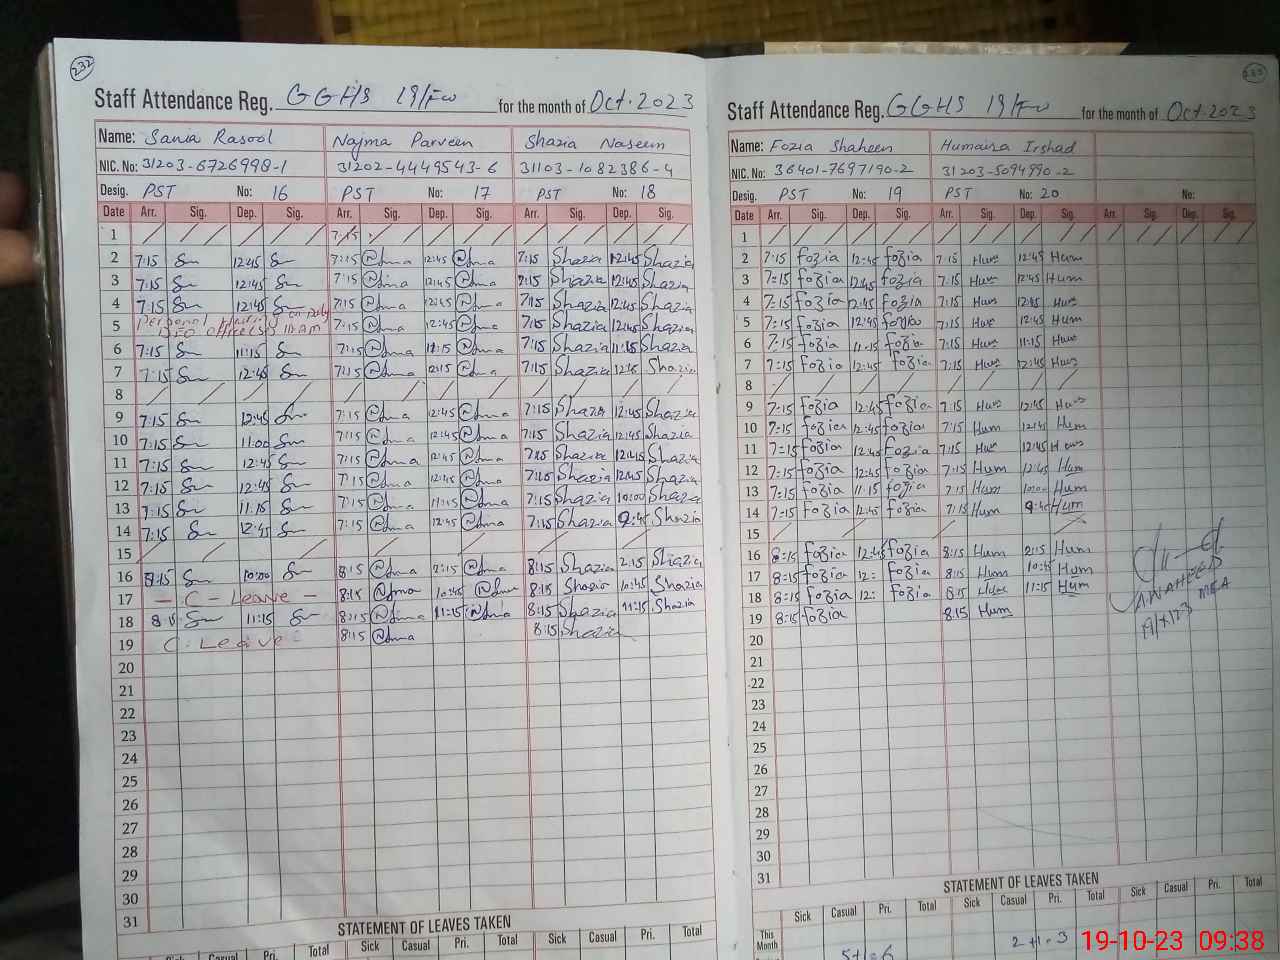 232
Staff Attendance Reg. GGHS 19/FW for the month of Oct. 2023
Name: Sania Rasool Najma Parveen Shazia Naseen
NIC. No: 31203-6726998-1 31202-4449543-6 31103-1082386-4
Desig. PST No: 16 PST No: 17 PST No: 18
Date Arr. Sig. Dep. Sig. Arr. Sig. Dep. Sig. Arr. Sig. Dep. Sig.
1 7:15
2 7:15 12:45 7:15 12:45 7:15 Shazia 12:45 Shazia
3 7:15 12:45 7:15 12:45 7:15 Shazia 12:45 Shazia
4 7:15 12:45 7:15 12:45 7:15 Shazia 12:45 Shazia
5 Personal DEO office 7:15 12:45 7:15 Shazia 12:45 Shazia
6 7:15 11:15 7:15 11:15 7:15 Shazia 11:15 Shazia
7 7:15 12:45 7:15 12:15 7:15 Shazia Shazia
8
9 7:15 12:45 7:15 12:45 7:15 Shazia 12:45 Shazia
10 7:15 11:00 7:15 12:45 7:15 Shazia 12:45 Shazia
11 7:15 12:45 7:15 12:45 7:15 Shazia 12:45 Shazia
12 7:15 12:45 7:15 12:45 7:15 Shazia 12:45 Shazia
13 7:15 11:15 7:15 11:15 7:15 Shazia 10:00 Shazia
14 7:15 12:45 7:15 12:45 7:15 Shazia 9:45 Shazia
15
16 8:15 10:00 8:15 2:15 8:15 Shazia 2:15 Shazia
17 - C - Leave - 8:15 10:45 8:15 Shazia 10:45 Shazia
18 8:15 11:15 8:15 11:15 8:15 Shazia 11:15 Shazia
19 C. Leave 8:15 8:15 Shazia
20
21
22
23
24
25
26
27
28
29
30
31
STATEMENT OF LEAVES TAKEN
Sick Casual Pri. Total Sick Casual Pri. Total Sick Casual Pri. Total
233
Staff Attendance Reg. GGHS 19/FW for the month of Oct. 2023
Name: Fozia Shaheen Humaira Irshad
NIC. No: 36401-7697190-2 31203-5094990-2
Desig. PST No: 19 PST No: 20 No:
Date Arr. Sig. Dep. Sig. Arr. Sig. Dep. Sig. Arr. Sig. Dep. Sig.
1
2 7:15 fozia 12:45 fozia 7:15 Hum 12:45 Hum
3 7:15 fozia 12:45 fozia 7:15 Hum 12:45 Hum
4 7:15 fozia 12:45 fozia 7:15 Hum 12:45 Hum
5 7:15 fozia 12:45 fozia 7:15 Hum 12:45 Hum
6 7:15 fozia 11:15 fozia 7:15 Hum 11:15 Hum
7 7:15 fozia 12:45 fozia 7:15 Hum 12:45 Hum
8
9 7:15 fozia 12:45 fozia 7:15 Hum 12:45 Hum
10 7:15 fozia 12:45 fozia 7:15 Hum 12:45 Hum
11 7:15 fozia 12:45 fozia 7:15 Hum 12:45 Hum
12 7:15 fozia 12:45 fozia 7:15 Hum 12:45 Hum
13 7:15 fozia 11:15 fozia 7:15 Hum 10:00 Hum
14 7:15 fozia 12:45 fozia 7:15 Hum 9:45 Hum
15
16 8:15 fozia 12:45 fozia 8:15 Hum 2:15 Hum
17 8:15 fozia 12: fozia 8:15 Hum 10:45 Hum
18 8:15 fozia 12: fozia 8:15 Hum 11:15 Hum
19 8:15 fozia 8:15 Hum
MEA
20
21
22
23
24
25
26
27
28
29
30
31
STATEMENT OF LEAVES TAKEN
Sick Casual Pri. Total Sick Casual Pri. Total Sick Casual Pri. Total
This Month 5+1=6 2+1=3
19-10-23 09:38